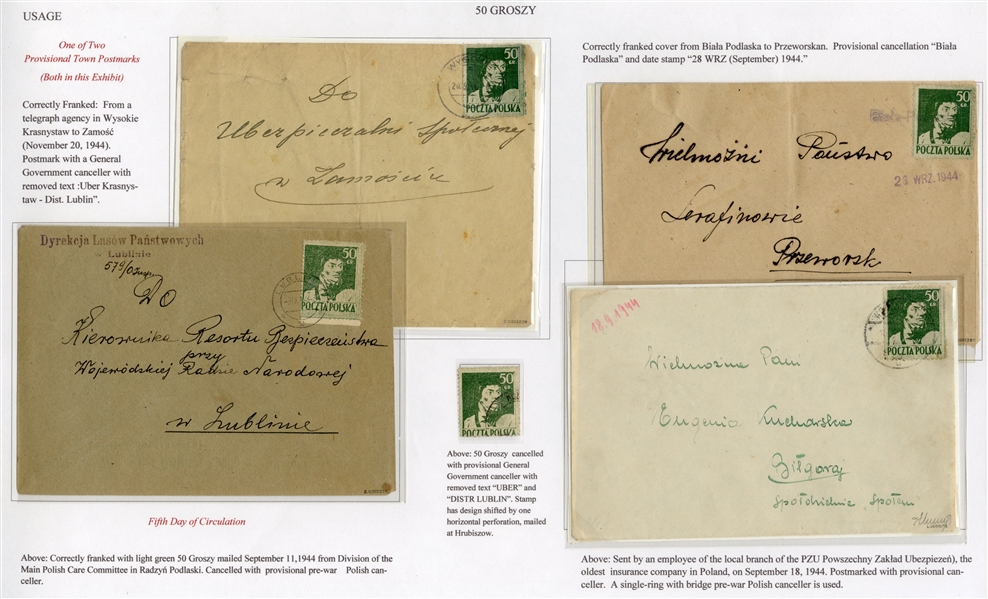 USAGE
50 GROSZY
One of Two
Provisional Town Postmarks
(Both in this Exhibit)
Correctly Franked: From a
telegraph agency in Wysokie
Krasnystaw to Zamość
(November 20, 1944).
Postmark with a General
Government canceller with
removed text :Uber Krasnys-
taw - Dist. Lublin”.
50
GR.
POCZTA POLSKA
Do
Uberpieczalni Społecznej
w Zamościu
Correctly franked cover from Biała Podlaska to Przeworskan. Provisional cancellation “Biała
Podlaska” and date stamp “28 WRZ (September) 1944.”
50
GR.
POCZTA POLSKA
23 WRZ. 1944
Wielmożni Państwo
Serafinowie
Przeworsk
Dyrekcja Lasów Państwowych
w Lublinie
50
POCZTA POLSKA
DO
Kierownika Resortu Bezpieczeństwa
przy
Wojewódzkiej Radzie Narodowej
w Lublinie
Fifth Day of Circulation
Above: Correctly franked with light green 50 Groszy mailed September 11,1944 from Division of the
Main Polish Care Committee in Radzyń Podlaski. Cancelled with provisional pre-war Polish can-
celler.
50
POCZTA POLSKA
Above: 50 Groszy cancelled
with provisional General
Government canceller with
removed text “UBER” and
“DISTR LUBLIN”. Stamp
has design shifted by one
horizontal perforation, mailed
at Hrubiszow.
18.9.1944
50
GR.
POCZTA POLSKA
Wielmożna Pani
Eugenia Kucharska
Biłgoraj
Spółdzielnia „Społem"
Above: Sent by an employee of the local branch of the PZU Powszechny Zakład Ubezpiezeń), the
oldest insurance company in Poland, on September 18, 1944. Postmarked with provisional can-
celler. A single-ring with bridge pre-war Polish canceller is used.